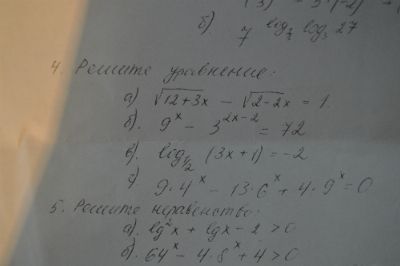 б) 7^{log_2 log_3 27}
4. Решите уравнение:
а) √(12+3x) − √(2−2x) = 1.
б) 9^x − 3^{2x−2} = 72
в) log_{1/2} (3x+1) = −2
г) 9·4^x − 13·6^x + 4·9^x = 0
5. Решите неравенство:
а) lg²x + lgx − 2 > 0
б) 64^x − 4·8^x + 4 > 0